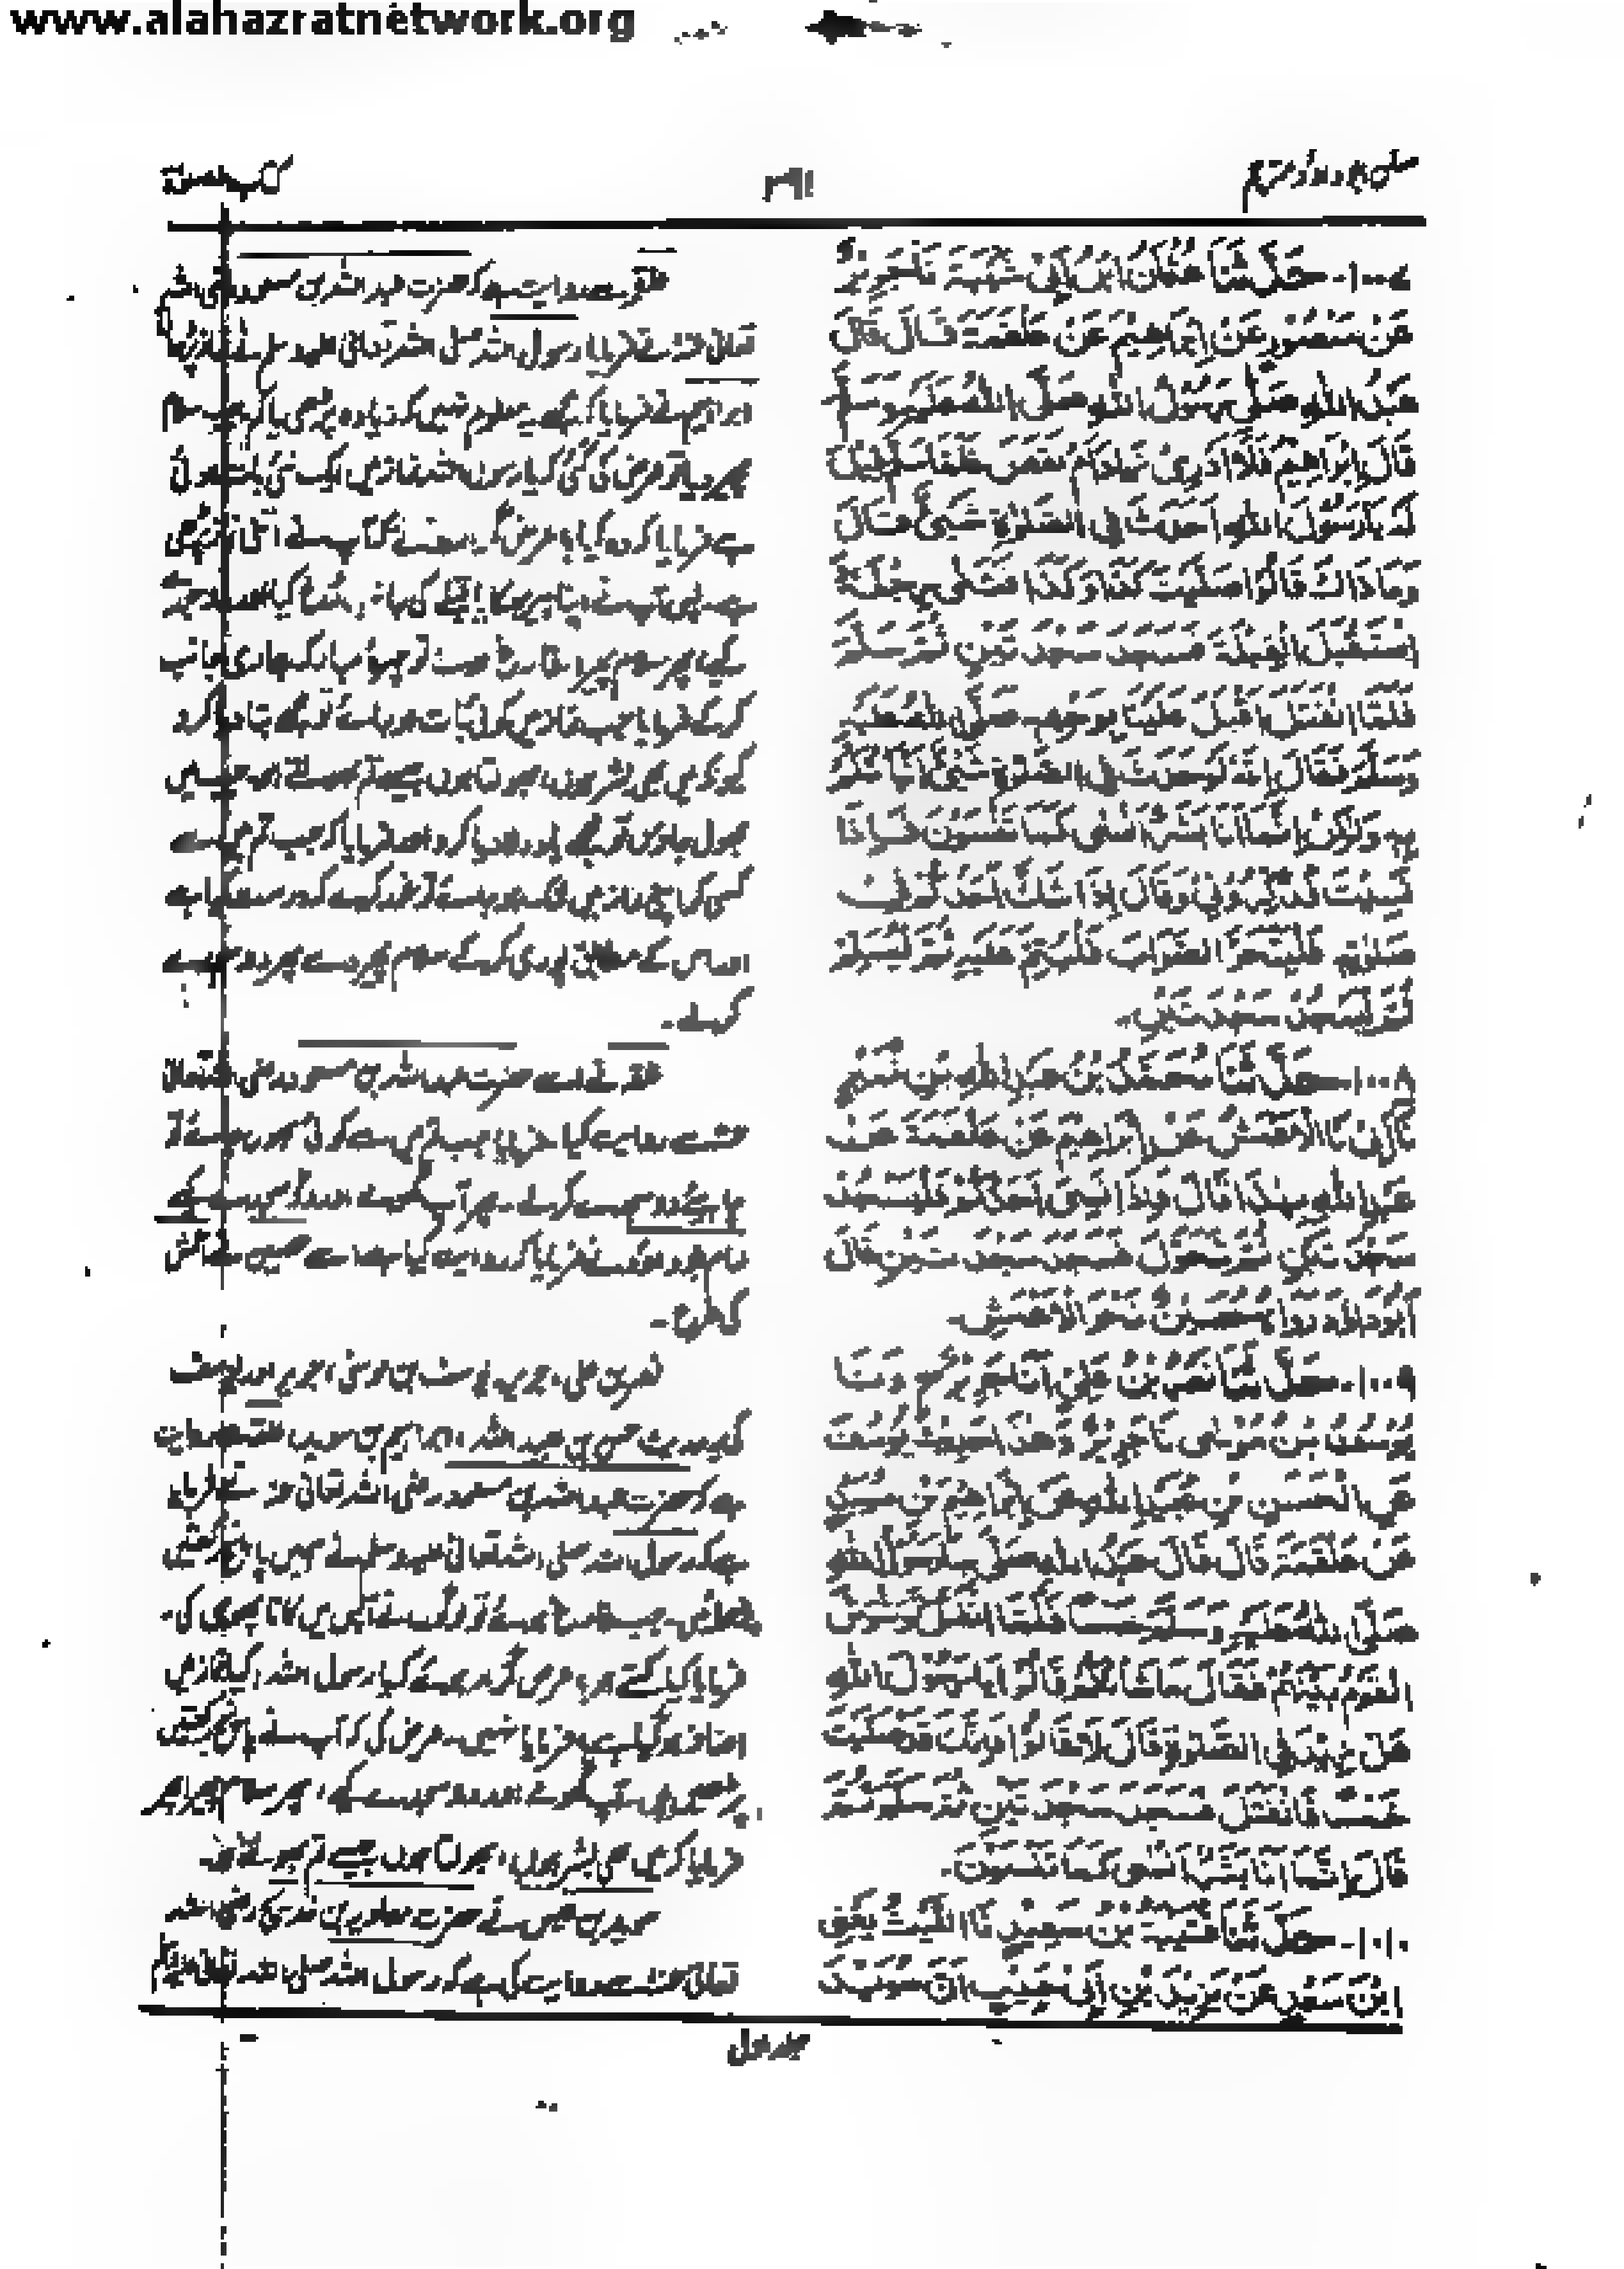 www.alahazratnetwork.org
کتاب الصلوٰة
۳۹۱
سنن ابوداؤد مترجم
۱۰۰۷- حَدَّثَنَا عُثْمَانُ ابْنُ اَبِیْ شَیْبَةَ نَا جَرِیْرٌ
عَنْ مَنْصُوْرٍ عَنْ اِبْرَاهِیْمَ عَنْ عَلْقَمَةَ قَالَ قَالَ
عَبْدُ اللهِ صَلّٰی رَسُوْلُ اللهِ صَلَّی اللهُ عَلَیْهِ وَسَلَّمَ
قَالَ اِبْرَاهِیْمُ فَلَا اَدْرِیْ زَادَ اَمْ نَقَصَ فَلَمَّا سَلَّمَ قِیْلَ
لَهٗ یَا رَسُوْلَ اللهِ اَحَدَثَ فِی الصَّلٰوةِ شَیْئٌ قَالَ
وَمَا ذَاكَ قَالُوْا صَلَّیْتَ كَذَا وَكَذَا فَثَنٰی رِجْلَهٗ
وَاسْتَقْبَلَ الْقِبْلَةَ فَسَجَدَ سَجْدَتَیْنِ ثُمَّ سَلَّمَ
فَلَمَّا انْفَتَلَ اَقْبَلَ عَلَیْنَا بِوَجْهِهٖ صَلَّی اللهُ عَلَیْهِ
وَسَلَّمَ فَقَالَ اِنَّهٗ لَوْ حَدَثَ فِی الصَّلٰوةِ شَیْئٌ اَنْبَأْتُكُمْ
بِهٖ وَلٰكِنْ اِنَّمَا اَنَا بَشَرٌ اَنْسٰی كَمَا تَنْسَوْنَ فَاِذَا
نَسِیْتُ فَذَكِّرُوْنِیْ وَقَالَ اِذَا شَكَّ اَحَدُكُمْ فِیْ
صَلٰوتِهٖ فَلْیَتَحَرَّ الصَّوَابَ فَلْیُتِمَّ عَلَیْهِ ثُمَّ لْیُسَلِّمْ
ثُمَّ لْیَسْجُدْ سَجْدَتَیْنِ۔
۱۰۰۸- حَدَّثَنَا مُحَمَّدُ بْنُ عَبْدِ اللهِ بْنِ نُمَیْرٍ
نَا اَبِیْ نَا الْاَعْمَشُ عَنْ اِبْرَاهِیْمَ عَنْ عَلْقَمَةَ عَنْ
عَبْدِ اللهِ بِهٰذَا قَالَ فَاِذَا نَسِیَ اَحَدُكُمْ فَلْیَسْجُدْ
سَجْدَتَیْنِ ثُمَّ تَحَوَّلَ فَسَجَدَ سَجْدَتَیْنِ قَالَ
اَبُوْدَاؤدَ رَوَاهُ حُصَیْنٌ نَحْوَ الْاَعْمَشِ۔
۱۰۰۹- حَدَّثَنَا نَصْرُ بْنُ عَلِیٍّ اَنَا جَرِیْرٌ وَنَا
یُوْسُفُ بْنُ مُوْسٰی نَا جَرِیْرٌ وَهٰذَا حَدِیْثُ یُوْسُفَ
عَنِ الْحَسَنِ بْنِ عُبَیْدِ اللهِ عَنْ اِبْرَاهِیْمَ بْنِ سُوَیْدٍ
عَنْ عَلْقَمَةَ قَالَ قَالَ عَبْدُ اللهِ صَلّٰی بِنَا رَسُوْلُ اللهِ
صَلَّی اللهُ عَلَیْهِ وَسَلَّمَ خَمْسًا فَلَمَّا انْفَتَلَ تَوَشْوَشَ
الْقَوْمُ بَیْنَهُمْ فَقَالَ مَا شَأْنُكُمْ قَالُوْا یَا رَسُوْلَ اللهِ
هَلْ زِیْدَ فِی الصَّلٰوةِ قَالَ لَا قَالُوْا فَاِنَّكَ قَدْ صَلَّیْتَ
خَمْسًا فَانْفَتَلَ فَسَجَدَ سَجْدَتَیْنِ ثُمَّ سَلَّمَ ثُمَّ
قَالَ اِنَّمَا اَنَا بَشَرٌ اَنْسٰی كَمَا تَنْسَوْنَ۔
۱۰۱۰- حَدَّثَنَا قُتَیْبَةُ بْنُ سَعِیْدٍ نَا اللَّیْثُ یَعْنِی
ابْنَ سَعْدٍ عَنْ یَزِیْدَ بْنِ اَبِیْ حَبِیْبٍ اَنَّ سُوَیْدَ
علقمہ سے روایت ہے کہ حضرت عبداللہ بن مسعود رضی اللہ
تعالیٰ عنہ نے فرمایا رسول اللہ صلی اللہ تعالیٰ علیہ وسلم نے نماز پڑھی
ابراہیم نے فرمایا کہ مجھے معلوم نہیں کہ زیادہ پڑھی یا کم جب سلام
پھیر دیا تو عرض کی گئی کہ یا رسول اللہ نماز میں ایک نئی بات ہوئی
ہے فرمایا کہ وہ کیا؟ عرض گزار ہوئے کہ آپ نے اتنی نماز پڑھی
ہے پس آپ نے اپنا پیر موڑا قبلے کی جانب منہ کیا اور دو سجدے
کیے پھر سلام پھیرا فارغ ہوئے تو چہرۂ مبارک ہماری جانب
کر کے فرمایا جب نماز میں کوئی بات ہو جائے تو مجھے بتا دیا کرو
کیونکہ میں بھی بشر ہوں، بھولتا ہوں جیسے تم بھولتے ہو جب میں
بھول جاؤں تو مجھے یاد دلا دیا کرو اور فرمایا کہ جب تم میں سے
کسی کی نماز میں شک ہو جائے تو غور کرے کہ درست کیا ہے
اور اس کے مطابق پوری کر کے سلام پھیر دے پھر دو سجدے
کر لے۔
علقمہ نے اسے حضرت عبداللہ بن مسعود رضی اللہ تعالیٰ
عنہ سے روایت کیا۔ فرمایا جب تم میں سے کوئی بھول جائے تو
چاہیے دو سجدے کر لے۔ پھر آپ گھومے اور دو سجدے کیے
امام ابوداؤد نے فرمایا کہ روایت کیا اسے حصین نے اعمش
کی طرح۔
نصر بن علی، جریر۔ یوسف بن موسیٰ، جریر اور یوسف
کی حدیث حسن بن عبید اللہ، ابراہیم بن سوید، علقمہ سے روایت
ہے کہ حضرت عبداللہ بن مسعود رضی اللہ تعالیٰ عنہ نے فرمایا
ہے کہ رسول اللہ صلی اللہ تعالیٰ علیہ وسلم نے ہمیں پانچ رکعتیں
پڑھائیں۔ جب فارغ ہوئے تو لوگوں نے آپس میں کانا پھوسی کی۔
فرمایا کیا کہتے ہو؟ عرض گزار ہوئے کہ یا رسول اللہ! کیا نماز میں
اضافہ ہو گیا ہے؟ فرمایا نہیں۔ عرض کی کہ آپ نے پانچ رکعتیں
پڑھیں ہیں۔ آپ گھومے اور دو سجدے کیے، پھر سلام پھیرا پھر
فرمایا کہ میں بھی بشر ہوں، بھولتا ہوں جیسے تم بھولتے ہو۔
سوید بن قیس نے حضرت معاویہ بن خدیج رضی اللہ
تعالیٰ عنہ سے روایت کی ہے کہ رسول اللہ صلی اللہ تعالیٰ علیہ
جلد اول